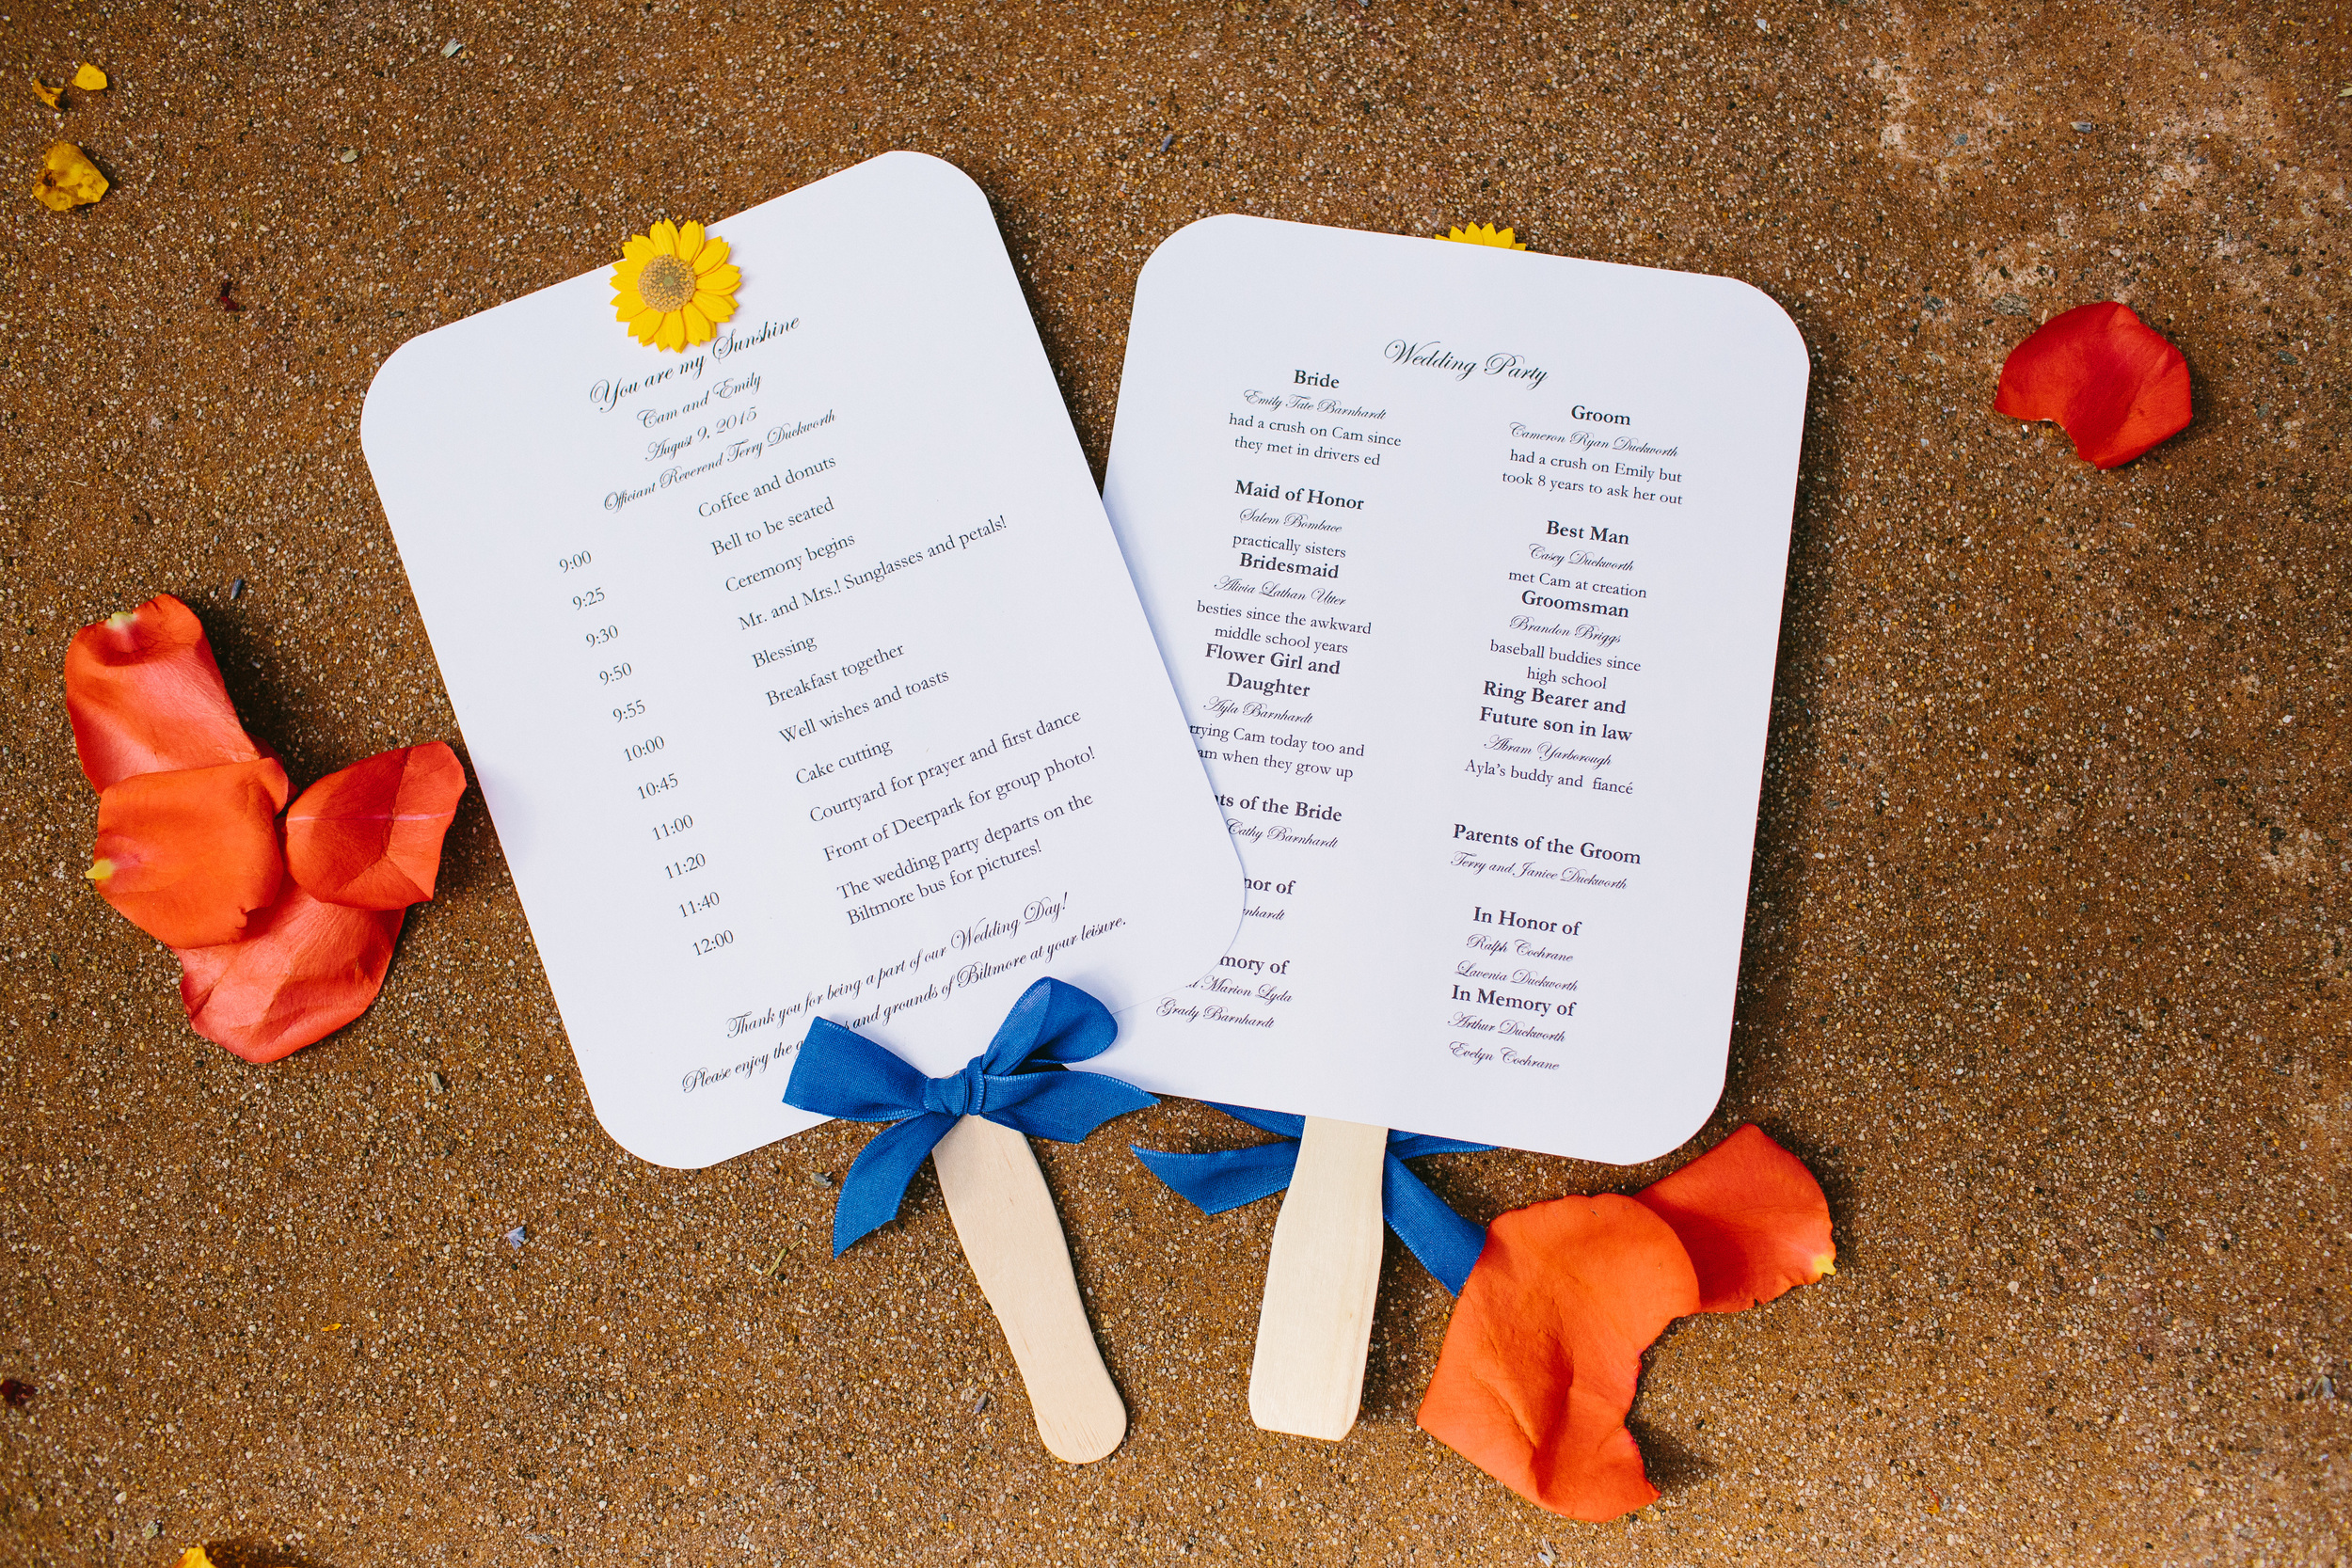 You are my Sunshine
Cam and Emily
August 9, 2015
Officiant Reverend Terry Duckworth
9:00 Coffee and donuts
9:25 Bell to be seated
9:30 Ceremony begins
9:50 Mr. and Mrs.! Sunglasses and petals!
9:55 Blessing
10:00 Breakfast together
10:45 Well wishes and toasts
11:00 Cake cutting
11:20 Courtyard for prayer and first dance
11:40 Front of Deerpark for group photo!
12:00 The wedding party departs on the
Biltmore bus for pictures!
Thank you for being a part of our Wedding Day!
Please enjoy the and grounds of Biltmore at your leisure.
Wedding Party
Bride
Emily Tate Barnhardt
had a crush on Cam since
they met in drivers ed
Maid of Honor
Salem Bombace
practically sisters
Bridesmaid
Alivia Lathan Utter
besties since the awkward
middle school years
Flower Girl and
Daughter
Ayla Barnhardt
Cam today too and
when they grow up
of the Bride
Cathy Barnhardt
of
of
Marion Lyda
Grady Barnhardt
Groom
Cameron Ryan Duckworth
had a crush on Emily but
took 8 years to ask her out
Best Man
Casey Duckworth
met Cam at creation
Groomsman
Brandon Briggs
baseball buddies since
high school
Ring Bearer and
Future son in law
Abram Yarborough
Ayla's buddy and fiancé
Parents of the Groom
Terry and Janice Duckworth
In Honor of
Ralph Cochrane
Lavenia Duckworth
In Memory of
Arthur Duckworth
Evelyn Cochrane